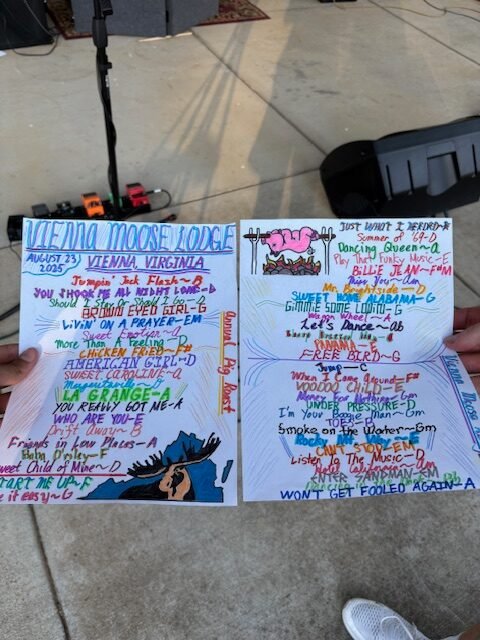 VIENNA MOOSE LODGE
AUGUST 23, 2025
VIENNA, VIRGINIA
Jumpin' Jack Flash~B
YOU SHOOK ME ALL NIGHT LONG~D
Should I Stay Or Should I Go~A
BROWN EYED GIRL~G
LIVIN' ON A PRAYER~EM
Sweet Emotion~A
More Than A Feeling~D
CHICKEN FRIED~F#
AMERICAN GIRL~D
SWEET CAROLINE~A
Margaritaville~D
LA GRANGE~A
YOU REALLY GOT ME~A
WHO ARE YOU~E
Drift Away~B
Friends in Low Places~A
Baba O'Riley~F
Sweet Child of Mine~D
START ME UP~F
e it easy~G
Annual Pig Roast
JUST WHAT I NEEDED~E
Summer of '69~D
Dancing Queen~A
Play That Funky Music~E
BILLIE JEAN~F#M
Miss You~Am
Mr. Brightside~D
SWEET HOME ALABAMA~G
GIMMIE SOME LOVIN~G
Wagon Wheel~A
Let's Dance~Ab
PANAMA~E
FREE BIRD~G
Jump~C
When I Come Around~F#
VOODOO CHILD~E
Money For Nothing~Gm
UNDER PRESSURE~D
I'm Your Boogie Man~Gm
TOES~D
Smoke on the Water~Gm
Rocky Mt. Way~E
CAN'T STOP~EM
Listen To The Music~D
Hotel California~Am
ENTER SANDMAN~EM
Dancing in the Dark
WON'T GET FOOLED AGAIN~A
Vienna Moose